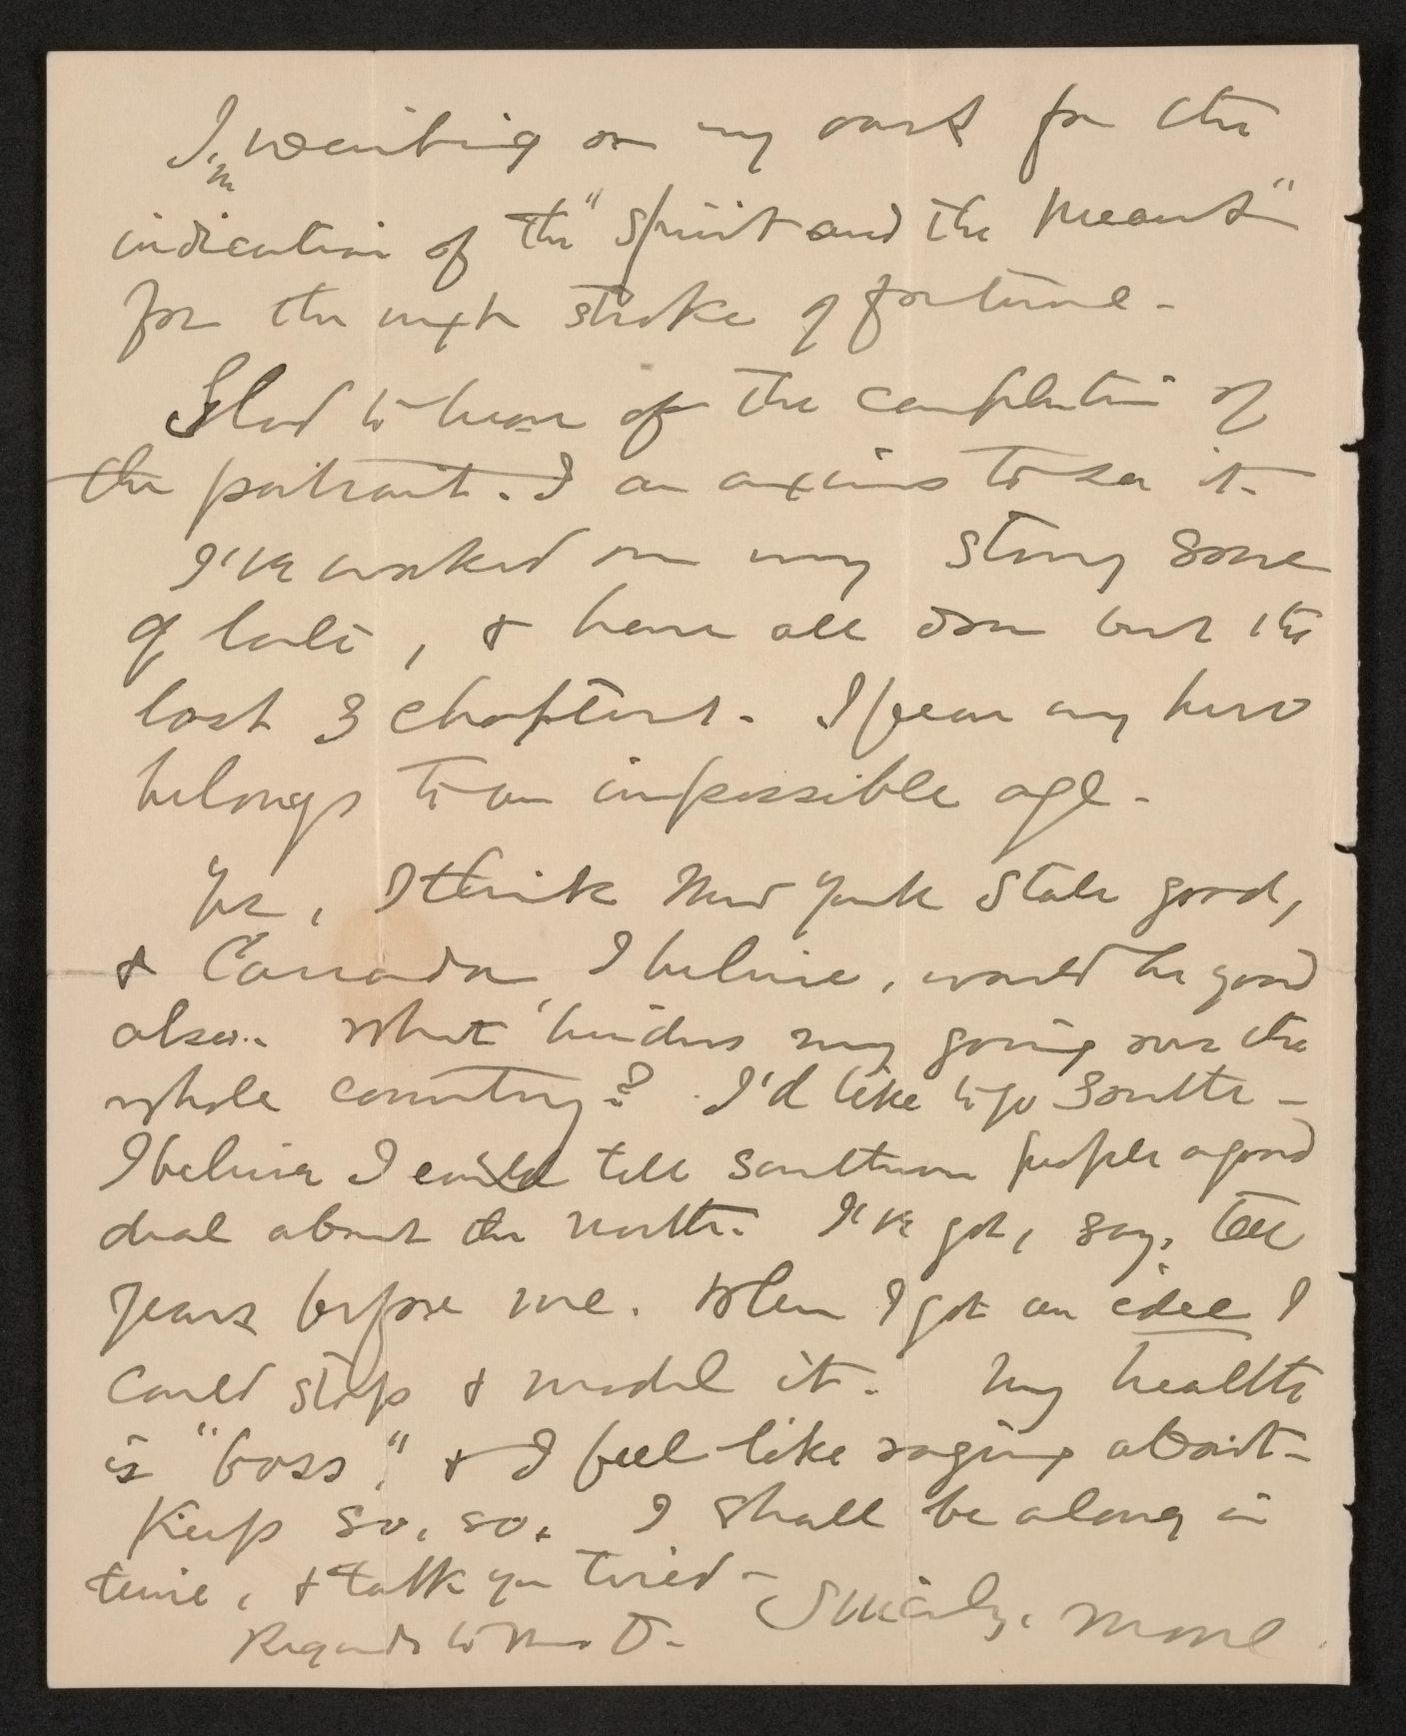 I'm waiting on my oars for the
indication of the "spirit and the means"
for the next stroke of fortune -
Glad to hear of the completion of
the portrait. I am anxious to see it.
I've worked on my story some
of late, & have all done but the
last 3 chapters. I fear my hero
belongs to an impossible age -
Yes, I think New York State good,
& Canada, I believe, would be good
also. What hinders my going over the
whole country? I'd like to go South -
I believe I could tell southern people a good
deal about the north. I've got, say, ten
years before me. When I got an idee I
could stop & model it. My health
is "boss," & I feel like raging about -
Keep so, so. I shall be along in
time, & talk you tired -
Sincerely, Mone
Regards to Mrs D -